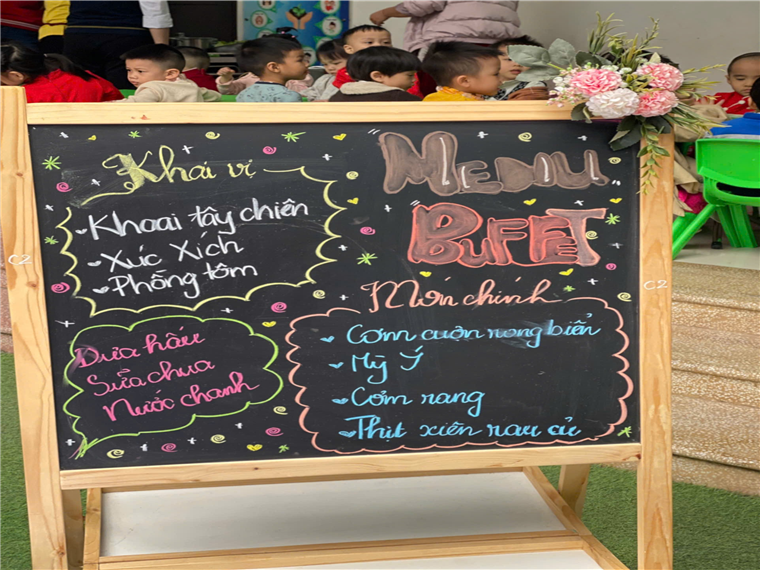 MENU
BUFFET
Khai vị
Khoai tây chiên
Xúc Xích
Phồng tôm
Dưa hấu
Sữa chua
Nước chanh
Món chính
Cơm cuộn rong biển
Mỳ Ý
Cơm rang
Thịt xiên rau củ
C2
C2